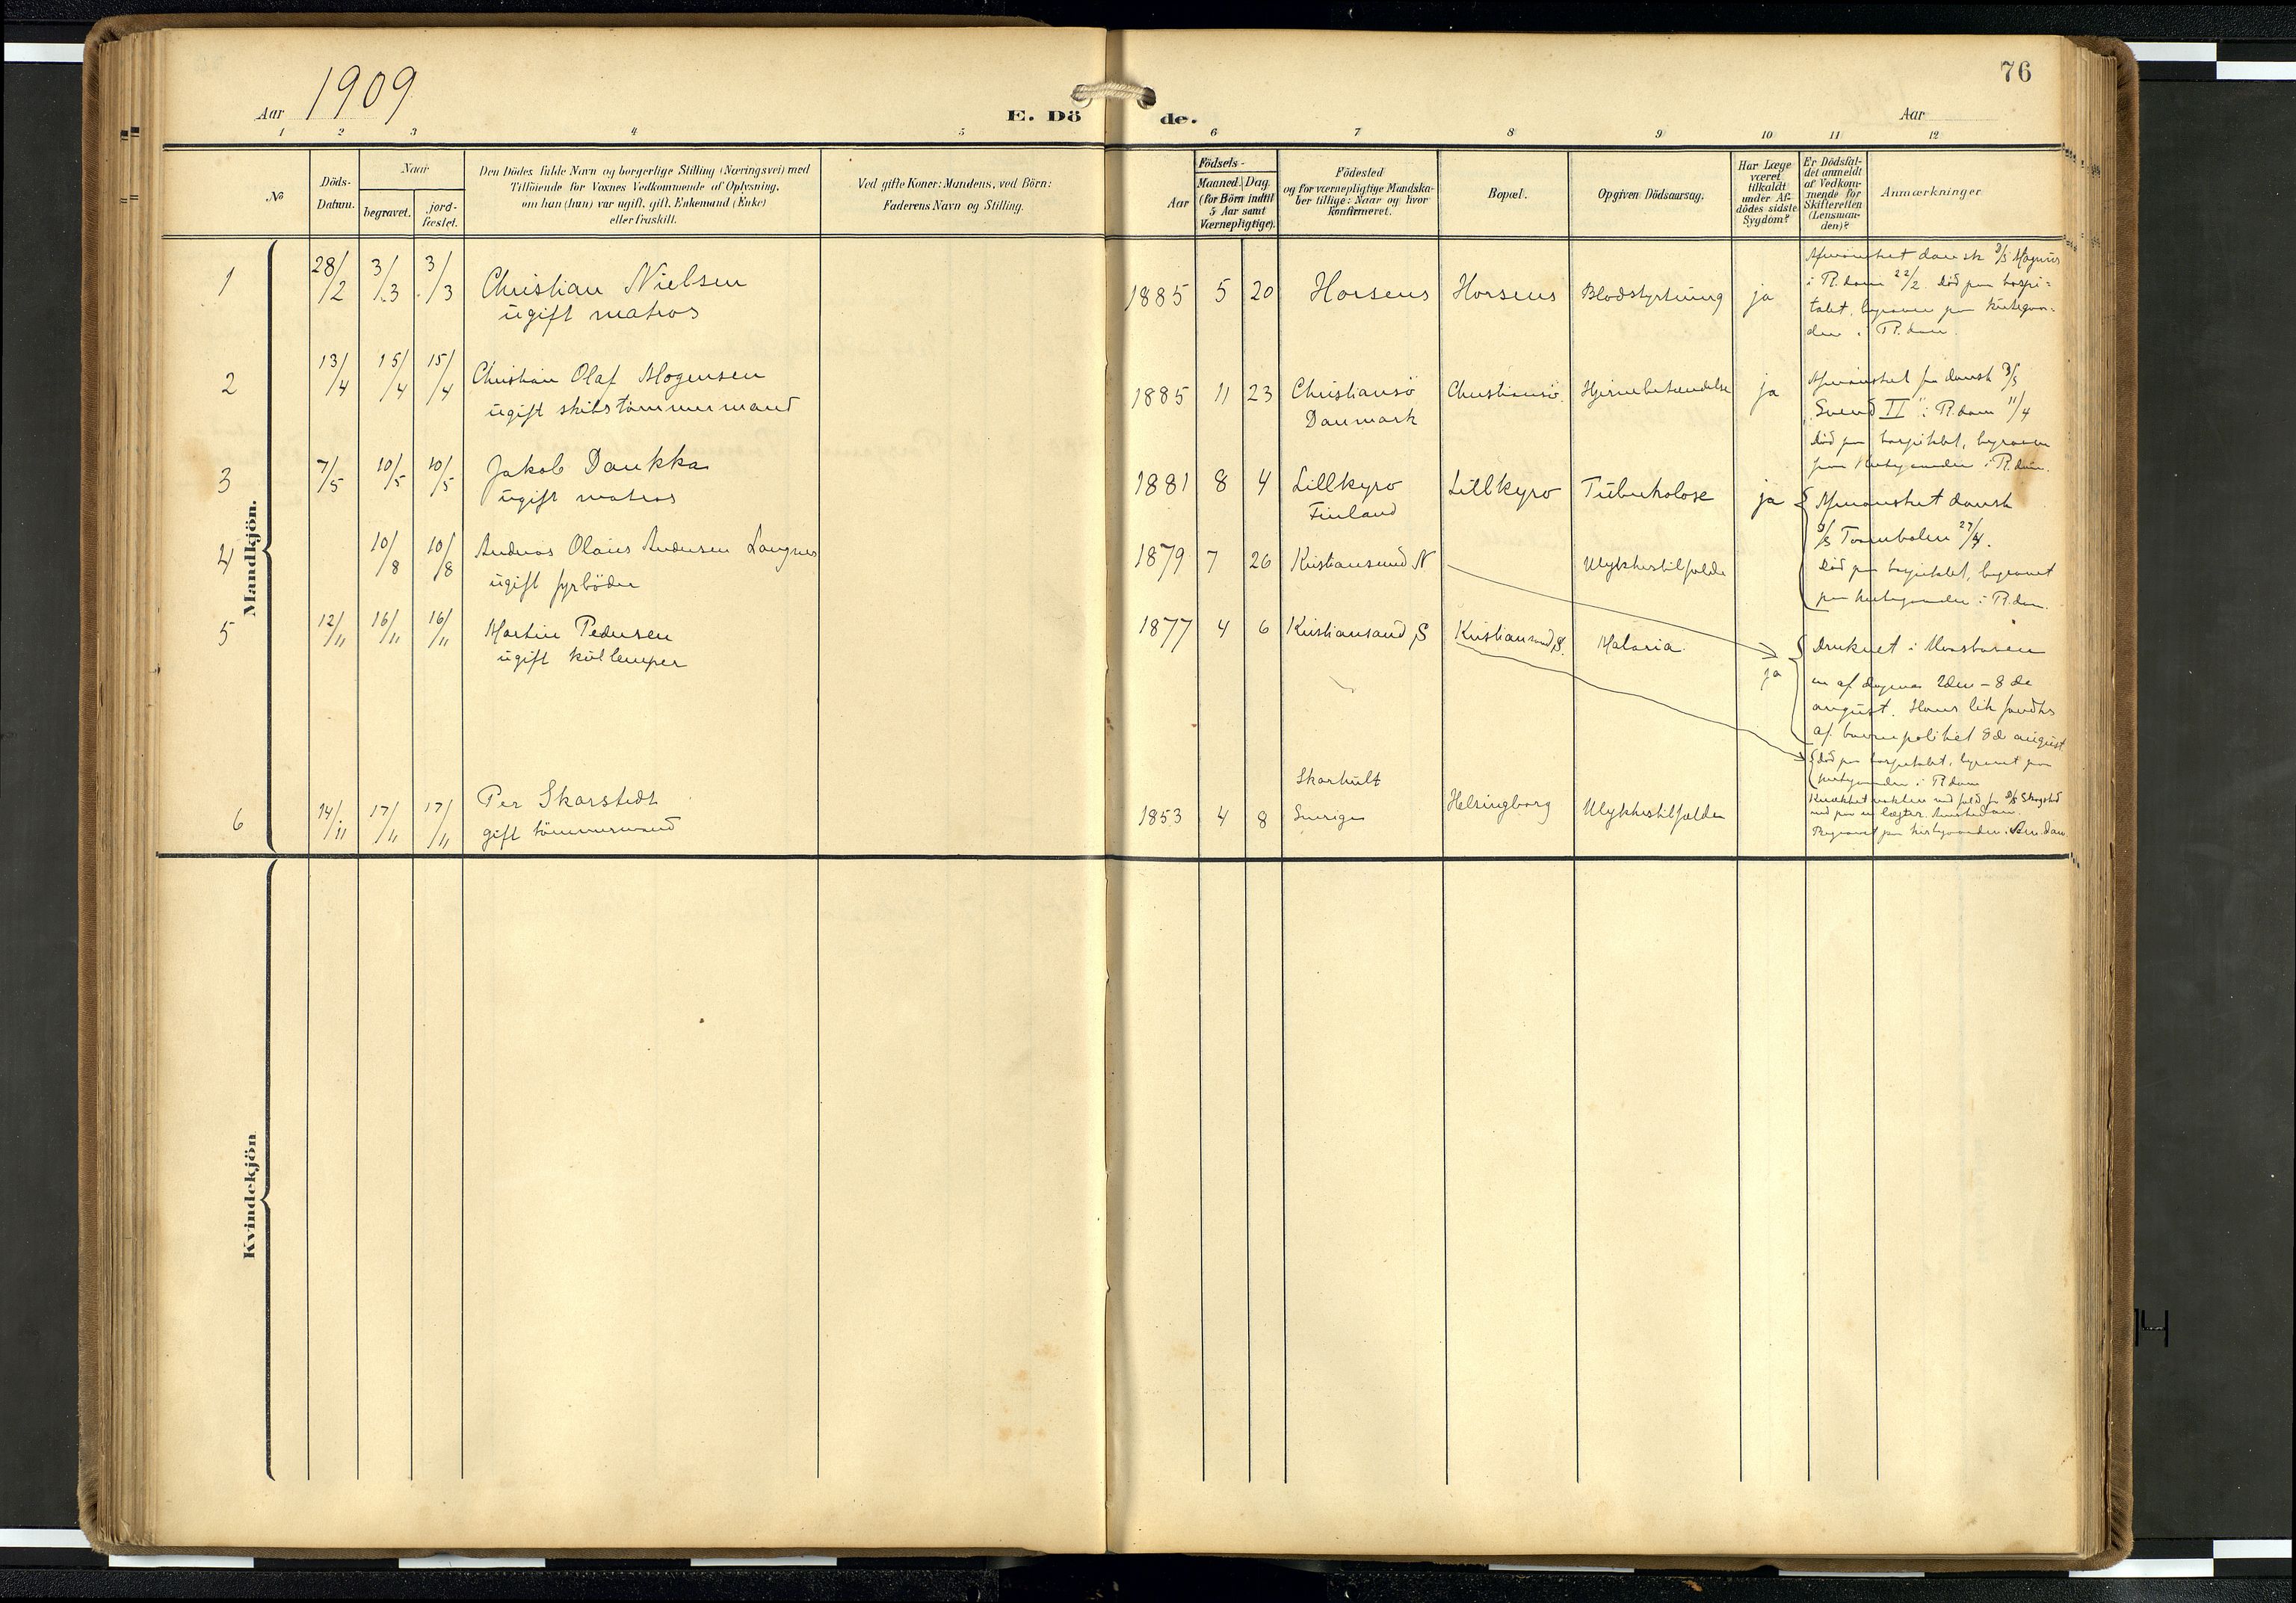 Aar 1909
E. Dö
de.
76
Aar
1 2 3 4 5 6 7 8 9 10 11 12
No
Döds-
Datum.
Naar
begravet.
jord-
fæstet.
Den Dödes fulde Navn og borgerlige Stilling (Næringsvei) med
Tilföiende for Voxnes Vedkommende af Oplysning,
om han (hun) var ugift, gift, Enkemand (Enke)
eller fraskilt.
Ved gifte Koner: Mandens, ved Börn:
Faderens Navn og Stilling.
Födsels-
Aar
Maaned. Dag.
(for Börn indtil
5 Aar samt
Værnepligtige).
Födested
og for værnepligtige Mandska-
ber tillige: Naar og hvor
konfirmeret.
Bopæl.
Opgiven Dödsaarsag.
Har Læge
været
tilkaldt
under Af-
dödes sidste
Sygdom?
Er Dödsfal-
det anmeldt
af Vedkom-
mende for
Skifteretten
(Lensman-
den)?
Anmærkninger.
Mandkjön.
1 28/2 3/3 3/3 Christian Nielsen
ugift matros
1885 5 20 Horsens Horsens Blodstyrtning ja
Afmönstret dansk D/S Magnus
i R.dam 22/2. Död paa hospi-
talet, begraven paa kirkegaar-
den i R.dam.
2 13/4 15/4 15/4 Christian Olaf Mogensen
ugift skibstömmermand
1885 11 23 Christiansö Christiansö Hjernebetændelse ja
Danmark
Afmönstret fra dansk D/S
"Svend II" i R.dam 11/4
Död paa hospitalet, begraven
paa kirkegaarden i R.dam.
3 7/5 10/5 10/5 Jakob Daukka
ugift matros
1881 8 4 Lillkyro Lillkyro Tuberkolose ja
Finland
Afmönstret dansk
D/S 27/4.
Död paa hospitalet, begravet
paa kirkegaarden i R.dam.
4 10/8 10/8 Andreas Olaus Andersen Langnes
ugift fyrböder
1879 7 26 Kristiansund N Ulykkestilfælde
Druknet i Maashaven
en af dagene 2den - 8de
august. Hans lik fandtes
af havnepolitiet 8de august
5 12/11 16/11 16/11 Martin Pedersen
ugift kullemper
1877 4 6 Kristiansand S Kristiansand S. Malaria ja
Död paa hospitalet, begravet paa
kirkegaarden i R.dam
6 14/11 17/11 17/11 Per Skarstedt
gift tömmermand
Skarhult
1853 4 8 Sverige Helsingborg Ulykkestilfælde
Knækket nakken ved fald fra D/S
ned paa en lægter. Amsterdam.
Begravet paa kirkegaarden i Am.dam.
Kvindekjön